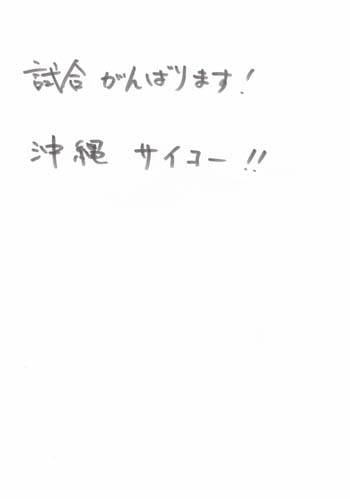 試合 がんばります!
沖縄 サイコー!!